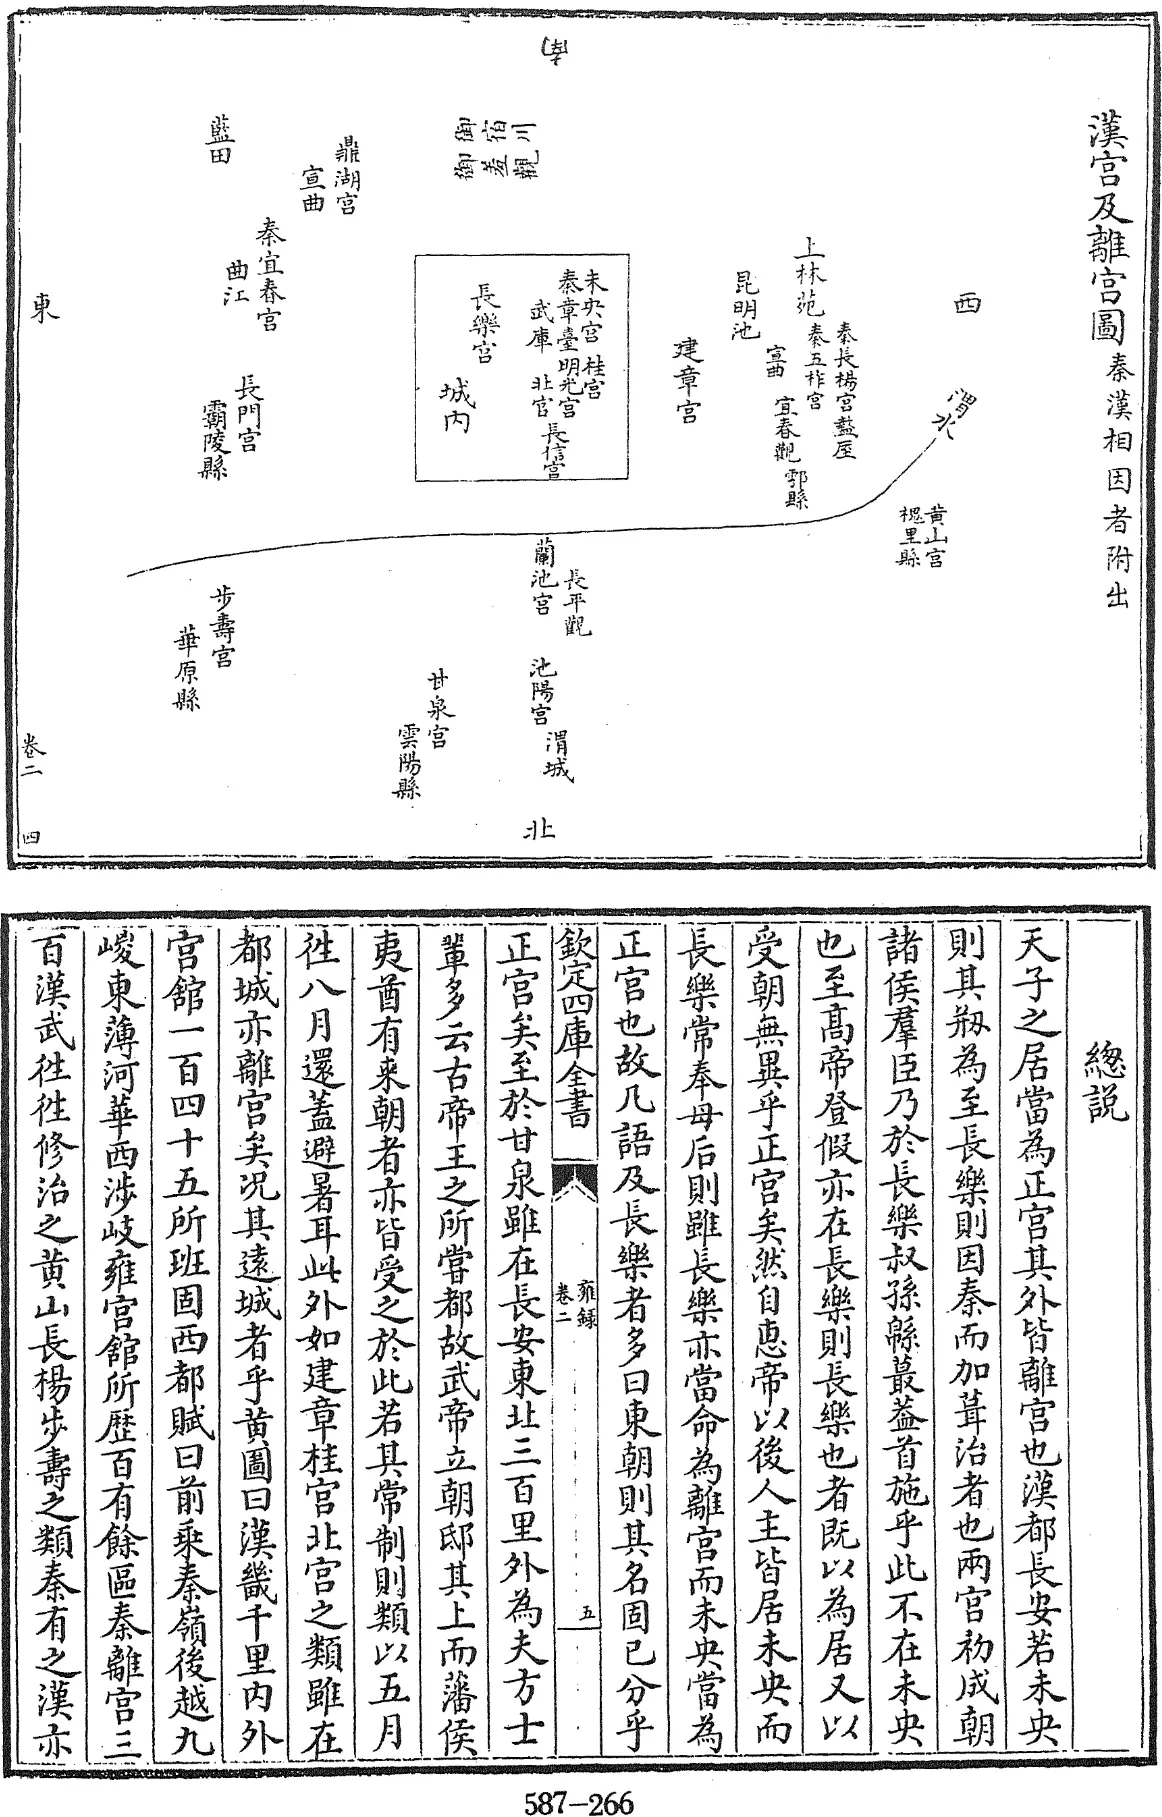 漢宫及離宫圖秦漢相因者附出
南
西
渭水
黄山宫
槐里縣
秦長楊宫盩厔
上林苑
秦五柞宫
宜春觀鄠縣
昆明池
宣曲
建章宫
御宿川
御羞觀
未央宫 桂宫
秦章臺明光宫
武庫 北宫
長信宫
長樂宫
城内
鼎湖宫
宣曲
藍田
秦宜春宫
曲江
東
長門宫
霸陵縣
長平觀
蘭池宫
池陽宫
渭城
甘泉宫
雲陽縣
步壽宫
華原縣
北
卷二
四
總説
天子之居當為正宫其外皆離宫也漢都長安若未央
則其剏為至長樂則因秦而加葺治者也兩宫初成朝
諸侯羣臣乃於長樂叔孫緜蕞葢首施乎此不在未央
也至髙帝登假亦在長樂則長樂也者既以為居又以
受朝無異乎正宫矣然自惠帝以後人主皆居未央而
長樂常奉母后則雖長樂亦當命為離宫而未央當為
正宫也故凡語及長樂者多曰東朝則其名固已分乎
欽定四庫全書
雍録
卷二
五
正宫矣至於甘泉雖在長安東北三百里外為夫方士
輩多云古帝王之所嘗都故武帝立朝邸其上而藩侯
夷酋有来朝者亦皆受之於此若其常制則類以五月
徃八月還蓋避暑耳此外如建章桂宫北宫之類雖在
都城亦離宫矣况其遠城者乎黄圖曰漢畿千里内外
宫舘一百四十五所班固西都賦曰前乗秦嶺後越九
嵕東薄河華西涉岐雍宫舘所歴百有餘區秦離宫三
百漢武徃徃修治之黄山長楊步壽之類秦有之漢亦
587-266